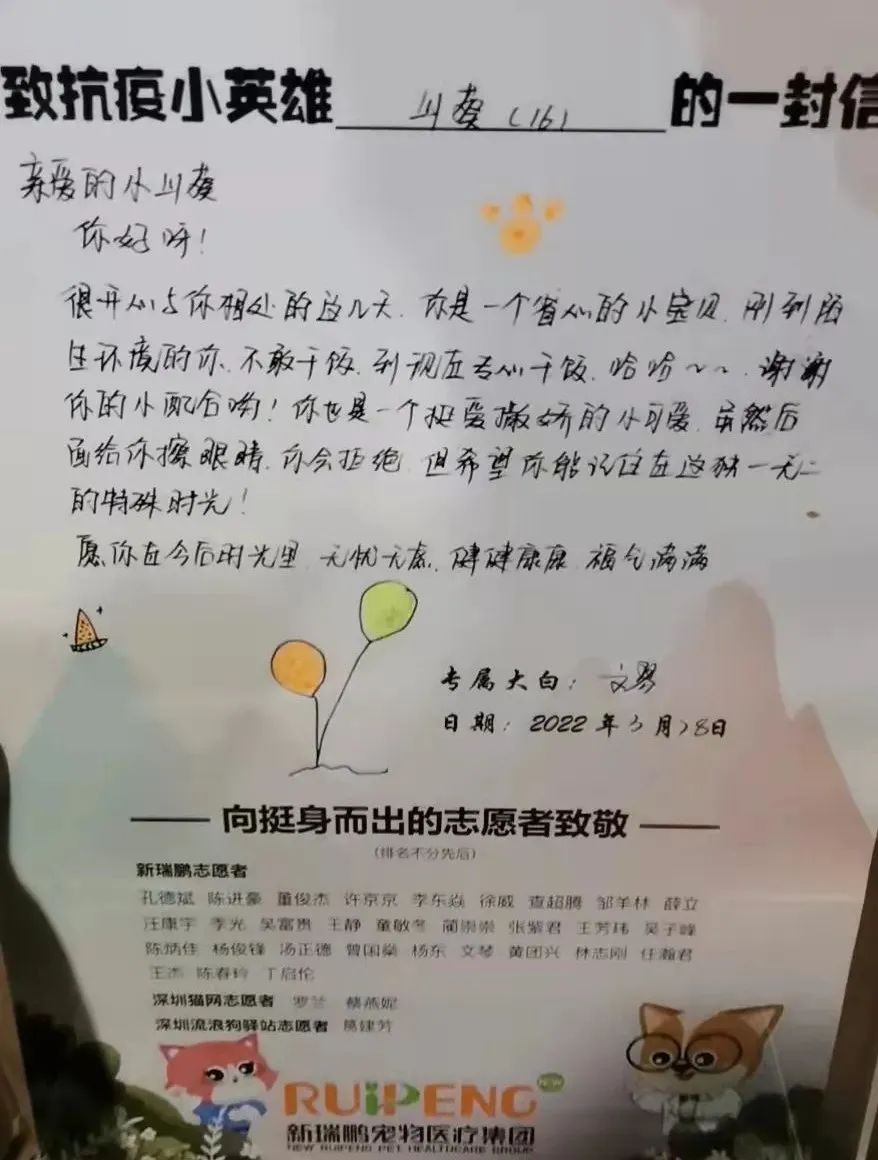 致抗疫小英雄 川葵(16) 的一封信
亲爱的小川葵
你好呀!
很开心与你相处的这几天,你是一个省心的小宝贝,刚到陌
生环境的你,不敢干饭,到现在专心干饭,哈哈~~,谢谢
你的小配合哟!你也是一个挺爱撒娇的小可爱,虽然后
面给你擦眼睛,你会拒绝,但希望你能记住在这独一无二
的特殊时光!
愿你在今后时光里,无忧无虑,健健康康,福气满满
专属大白:文琴
日期:2022年3月28日
向挺身而出的志愿者致敬
(排名不分先后)
新瑞鹏志愿者
孔德斌 陈进豪 董俊杰 许京京 李东焱 徐威 查超腾 邹羊林 薛立
汪康宇 李光 吴富贵 王静 童敏冬 蔺崇崇 张紫君 王芳玮 吴子峰
陈炳佳 杨俊锋 汤正德 曾国燊 杨东 文琴 黄团兴 林志刚 任瀚君
王杰 陈春玲 丁启伦
深圳猫网志愿者 罗兰 蔡燕妮
深圳流浪狗驿站志愿者 葛建芳
RUiPENG NEW
新瑞鹏宠物医疗集团
NEW RUIPENG PET HEALTHCARE GROUP